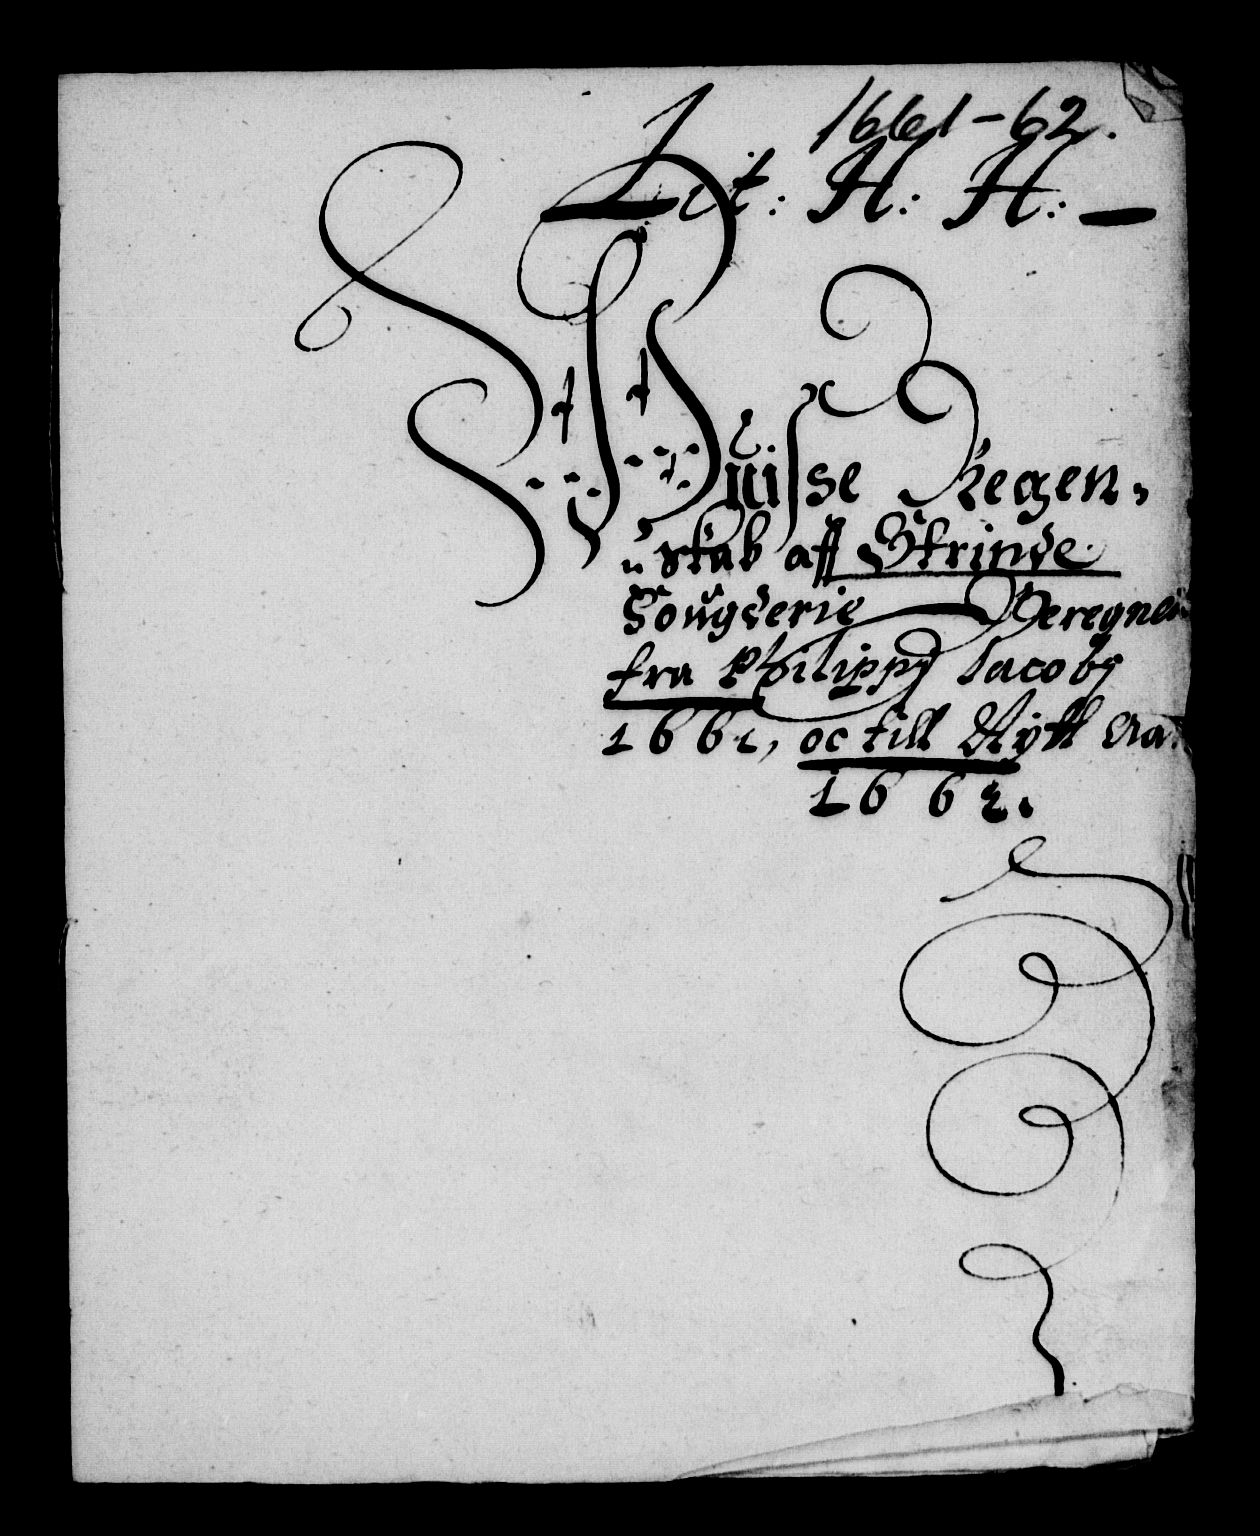 1661-62.
Lit: H: H:
Wiisse Regen-
skab aff Strinde
Fougderie Beregnet
fra Philippj Jacobj
1661, oc till Nytt Aar
1662.